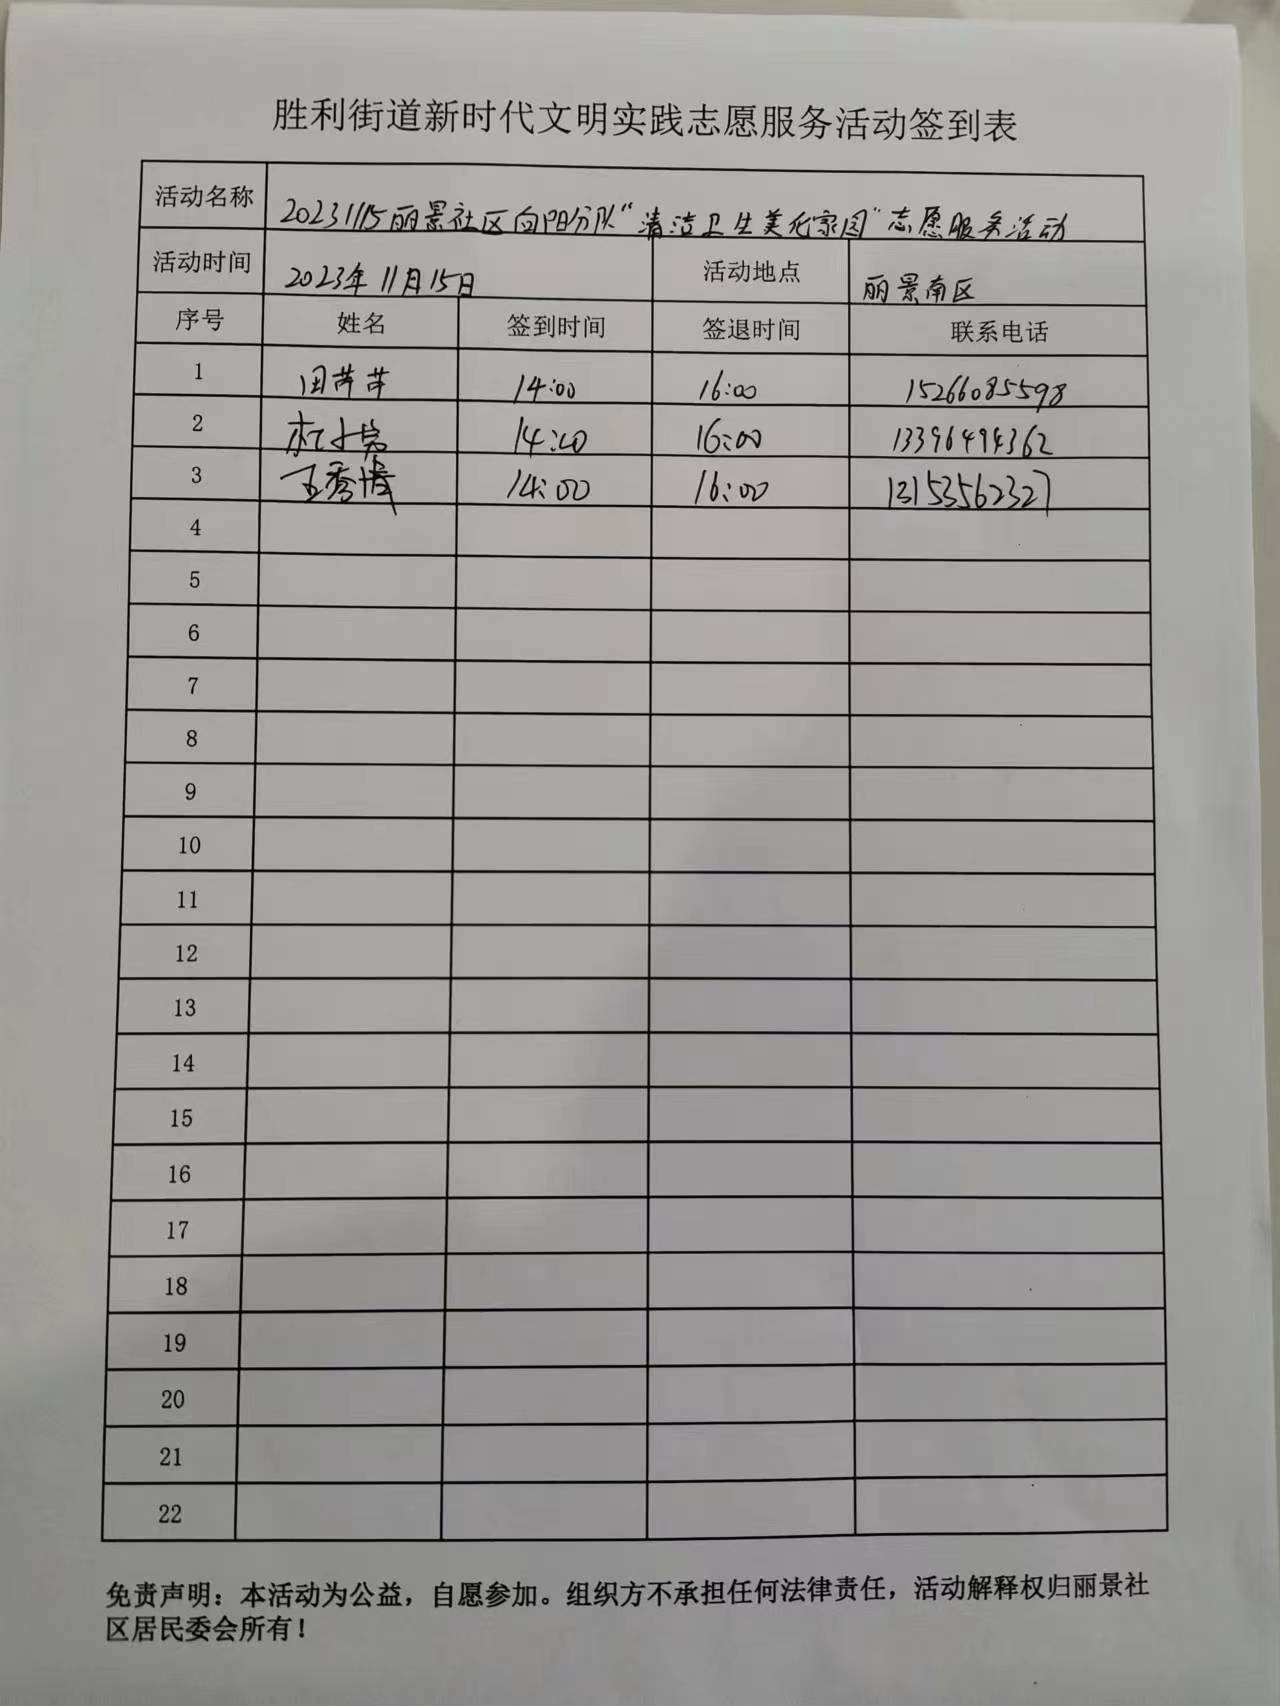 胜利街道新时代文明实践志愿服务活动签到表
活动名称 20231115丽景社区向阳分队“清洁卫生美化家园”志愿服务活动
活动时间 2023年11月15日 活动地点 丽景南区
序号 姓名 签到时间 签退时间 联系电话
1 田苹苹 14:00 16:00 15266085598
2 14:00 16:00 13396494362
3 王秀 14:00 16:00 13153562327
4
5
6
7
8
9
10
11
12
13
14
15
16
17
18
19
20
21
22
免责声明：本活动为公益，自愿参加。组织方不承担任何法律责任，活动解释权归丽景社
区居民委会所有！